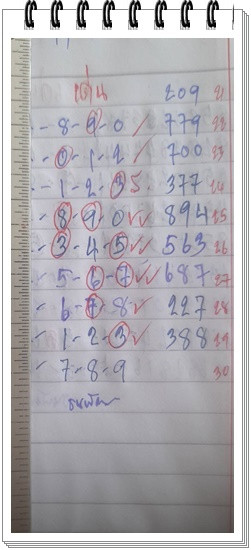 เด่น 209 21
- 8-9-0 / 779 22
- 0-1-2 / 700 23
- 1-2-3 5. 377 24
- 8-9-0 ✓✓ 894 25
- 3-4-5 ✓ 563 26
- 5-6-7 ✓✓ 687 27
- 6-7-8 ✓ 227 28
- 1-2-3 ✓ 388 29
- 7-8-9 30